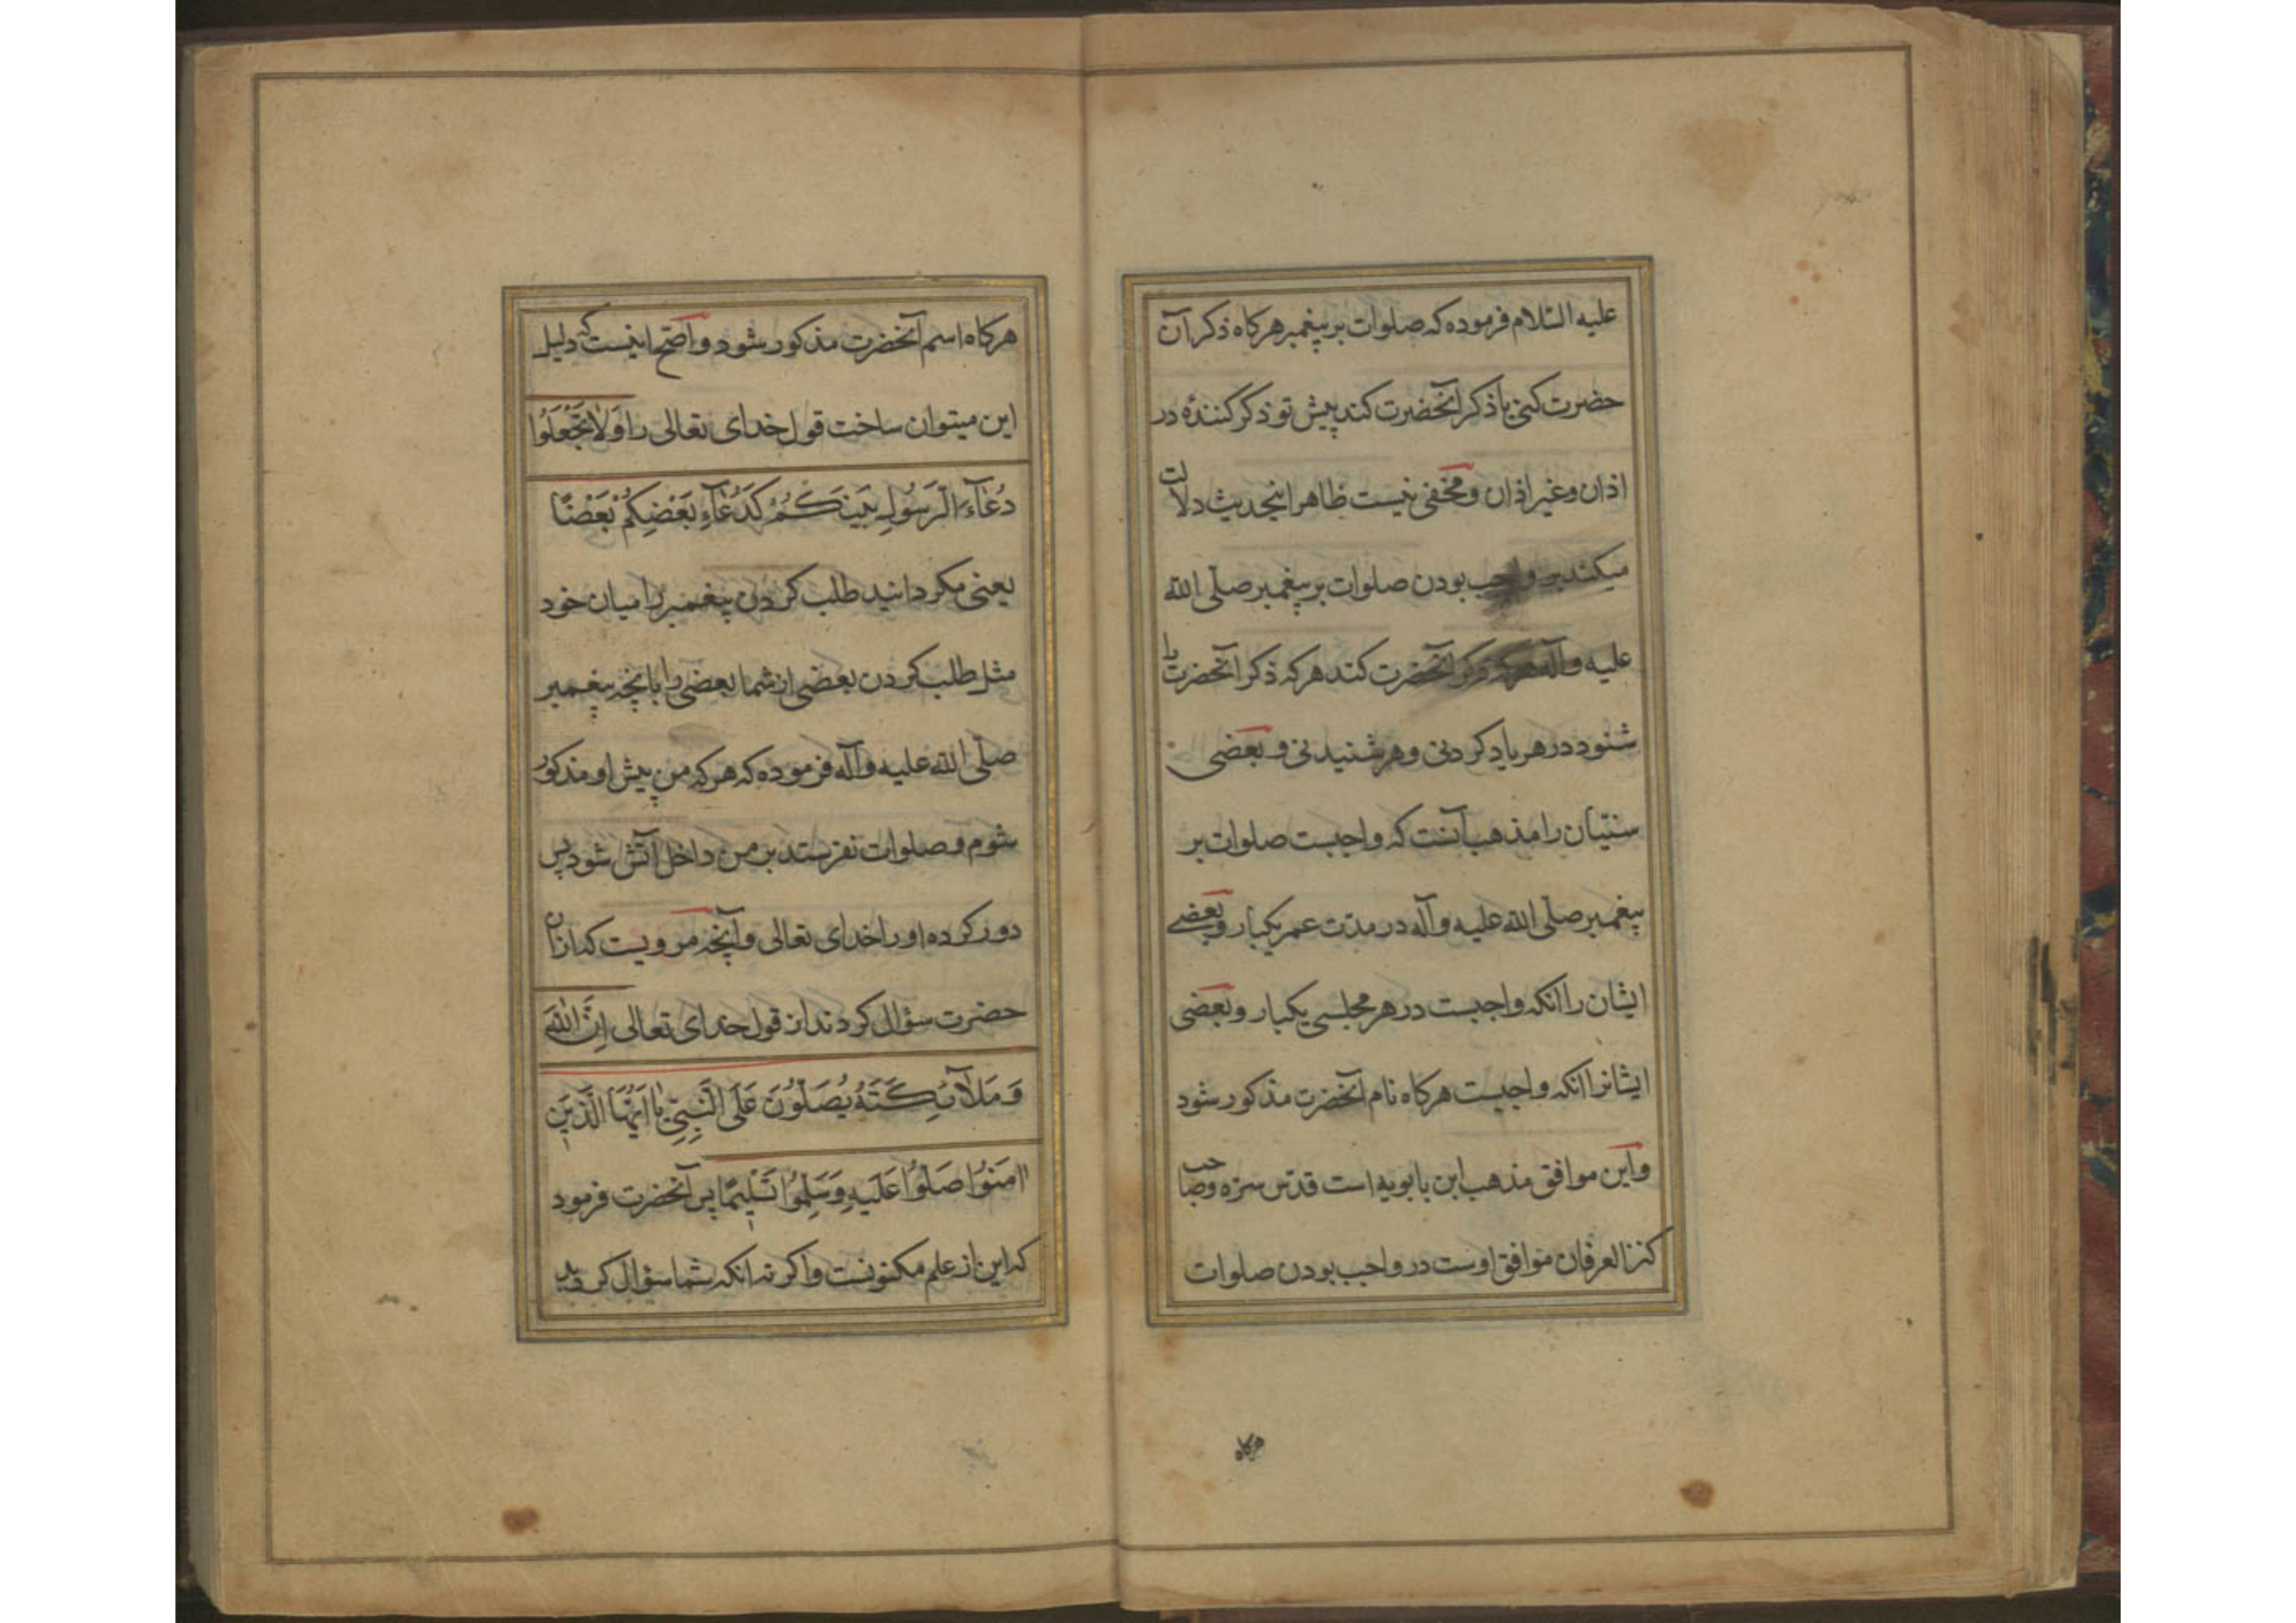 علیه السّلام فرموده که صلوات بر پیغمبر هرکاه ذکر آن
حضرت کنی یا ذکر آنحضرت کند پیش تو ذکر کنندهٔ در
اذان و غیر اذان و مخفی نیست ظاهر اینحدیث دلالت
میکند بر واجب بودن صلوات بر پیغمبر صلّی الله
علیه وآله هرکه ذکر آنحضرت کند هرکه ذکر آنحضرت را
شنود در هر یاد کردنی و هر شنیدنی و بعضی
سنّیان را مذهب آنست که واجبست صلوات بر
پیغمبر صلّی الله علیه وآله در مدّت عمر یکبار و بعضی
ایشان را انکه واجبست در هر مجلسی یکبار و بعضی
ایشانرا انکه واجبست هرکاه نام آنحضرت مذکور شود
و این موافق مذهب ابن بابویه است قدّس سرّه و صاحب
کنز العرفان موافق اوست در واجب بودن صلوات
هرکاه
هرکاه اسم آنحضرت مذکور شود و اصّح اینست که دلیل
این میتوان ساخت قول خدای تعالی را وَلَا تَجْعَلُوا
دُعَآءَ الرَّسُولِ بَیْنَکُمْ کَدُعَآءِ بَعْضِکُمْ بَعْضًا
یعنی مکردانید طلب کردن پیغمبر را میان خود
مثل طلب کردن بعضی از شما بعضی را با آنچه پیغمبر
صلّی الله علیه وآله فرموده که هرکه من پیش او مذکور
شوم و صلوات نفرستد بر من داخل آتش شود پس
دور کرده او را خدای تعالی و آنچه مرویست که از آن
حضرت سؤال کردند از قول خدای تعالی اِنَّ اللّٰهَ
وَمَلٰآئِکَتَهُ یُصَلُّونَ عَلَی النَّبِیِّ یٰا اَیُّهَا الَّذینَ
اٰمَنُوا صَلُّوا عَلَیْهِ وَسَلِّمُوا تَسْلیمًا پس آنحضرت فرمود
که این از علم مکنونست و اکر نه انکه شما سؤال کردید